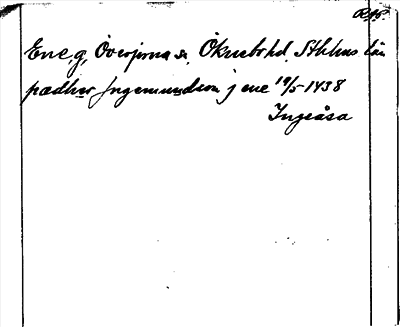 RAp.
Ene, g, Överjärna sn, Öknebo hd, Sthlms län
pædher Jngemundson j ene 19/5 1438
Ingeåsa